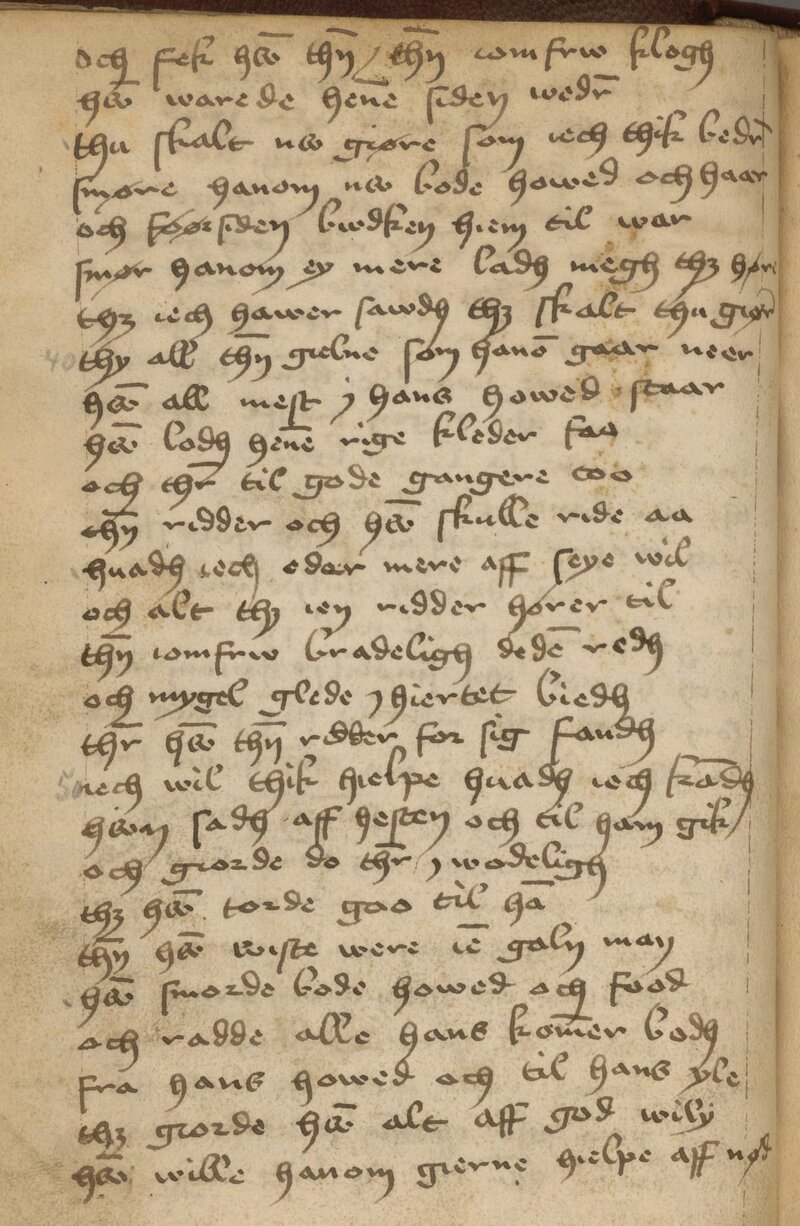 och fek hw̄ thn̄ / thn̄ iomfrw klogh
hw̄ warede hen̄e siden wedr̄
thu skalt nw giøre som iech thik bedr̄
smøre hanom nw bode howed och haar
och føør siden bwdken hiem til war
smør hanom ey mere ladh megh thz høre
thz iech hawer sawdh thz skalt thu giør
thy all thn̄ gielne som hanō gaar neer
hw̄ all mest j hans howed staar
hw̄ lodh hen̄e rige kleder faa
och thr̄ til gode gangere too
thn̄ ridder och hw̄ skulle ride aa
huadh iech eder mere aff seye wil
och alt thz ien ridder hører til
thn̄ iomfrw bradeligh dedē redh
och mygel glede j hiertet biedh
thr̄ hw̄ thn̄ ridder for sig fandh
iech wil thik hielpe huadh iech kādh
hwn sadh aff hesten och til ham gik
och giorde do thr̄ j wodeligh
thz hw̄ torde goo til hā
thn̄ hw̄ wiste were iē galn man
hw̄ smorde bode howed och food
och radde alle hans kom̄er bodh
fra hans howed och til hans yle
thz giorde hw̄ alt aff god wily
hw̄ wille hanom gierne hielpe aff nød